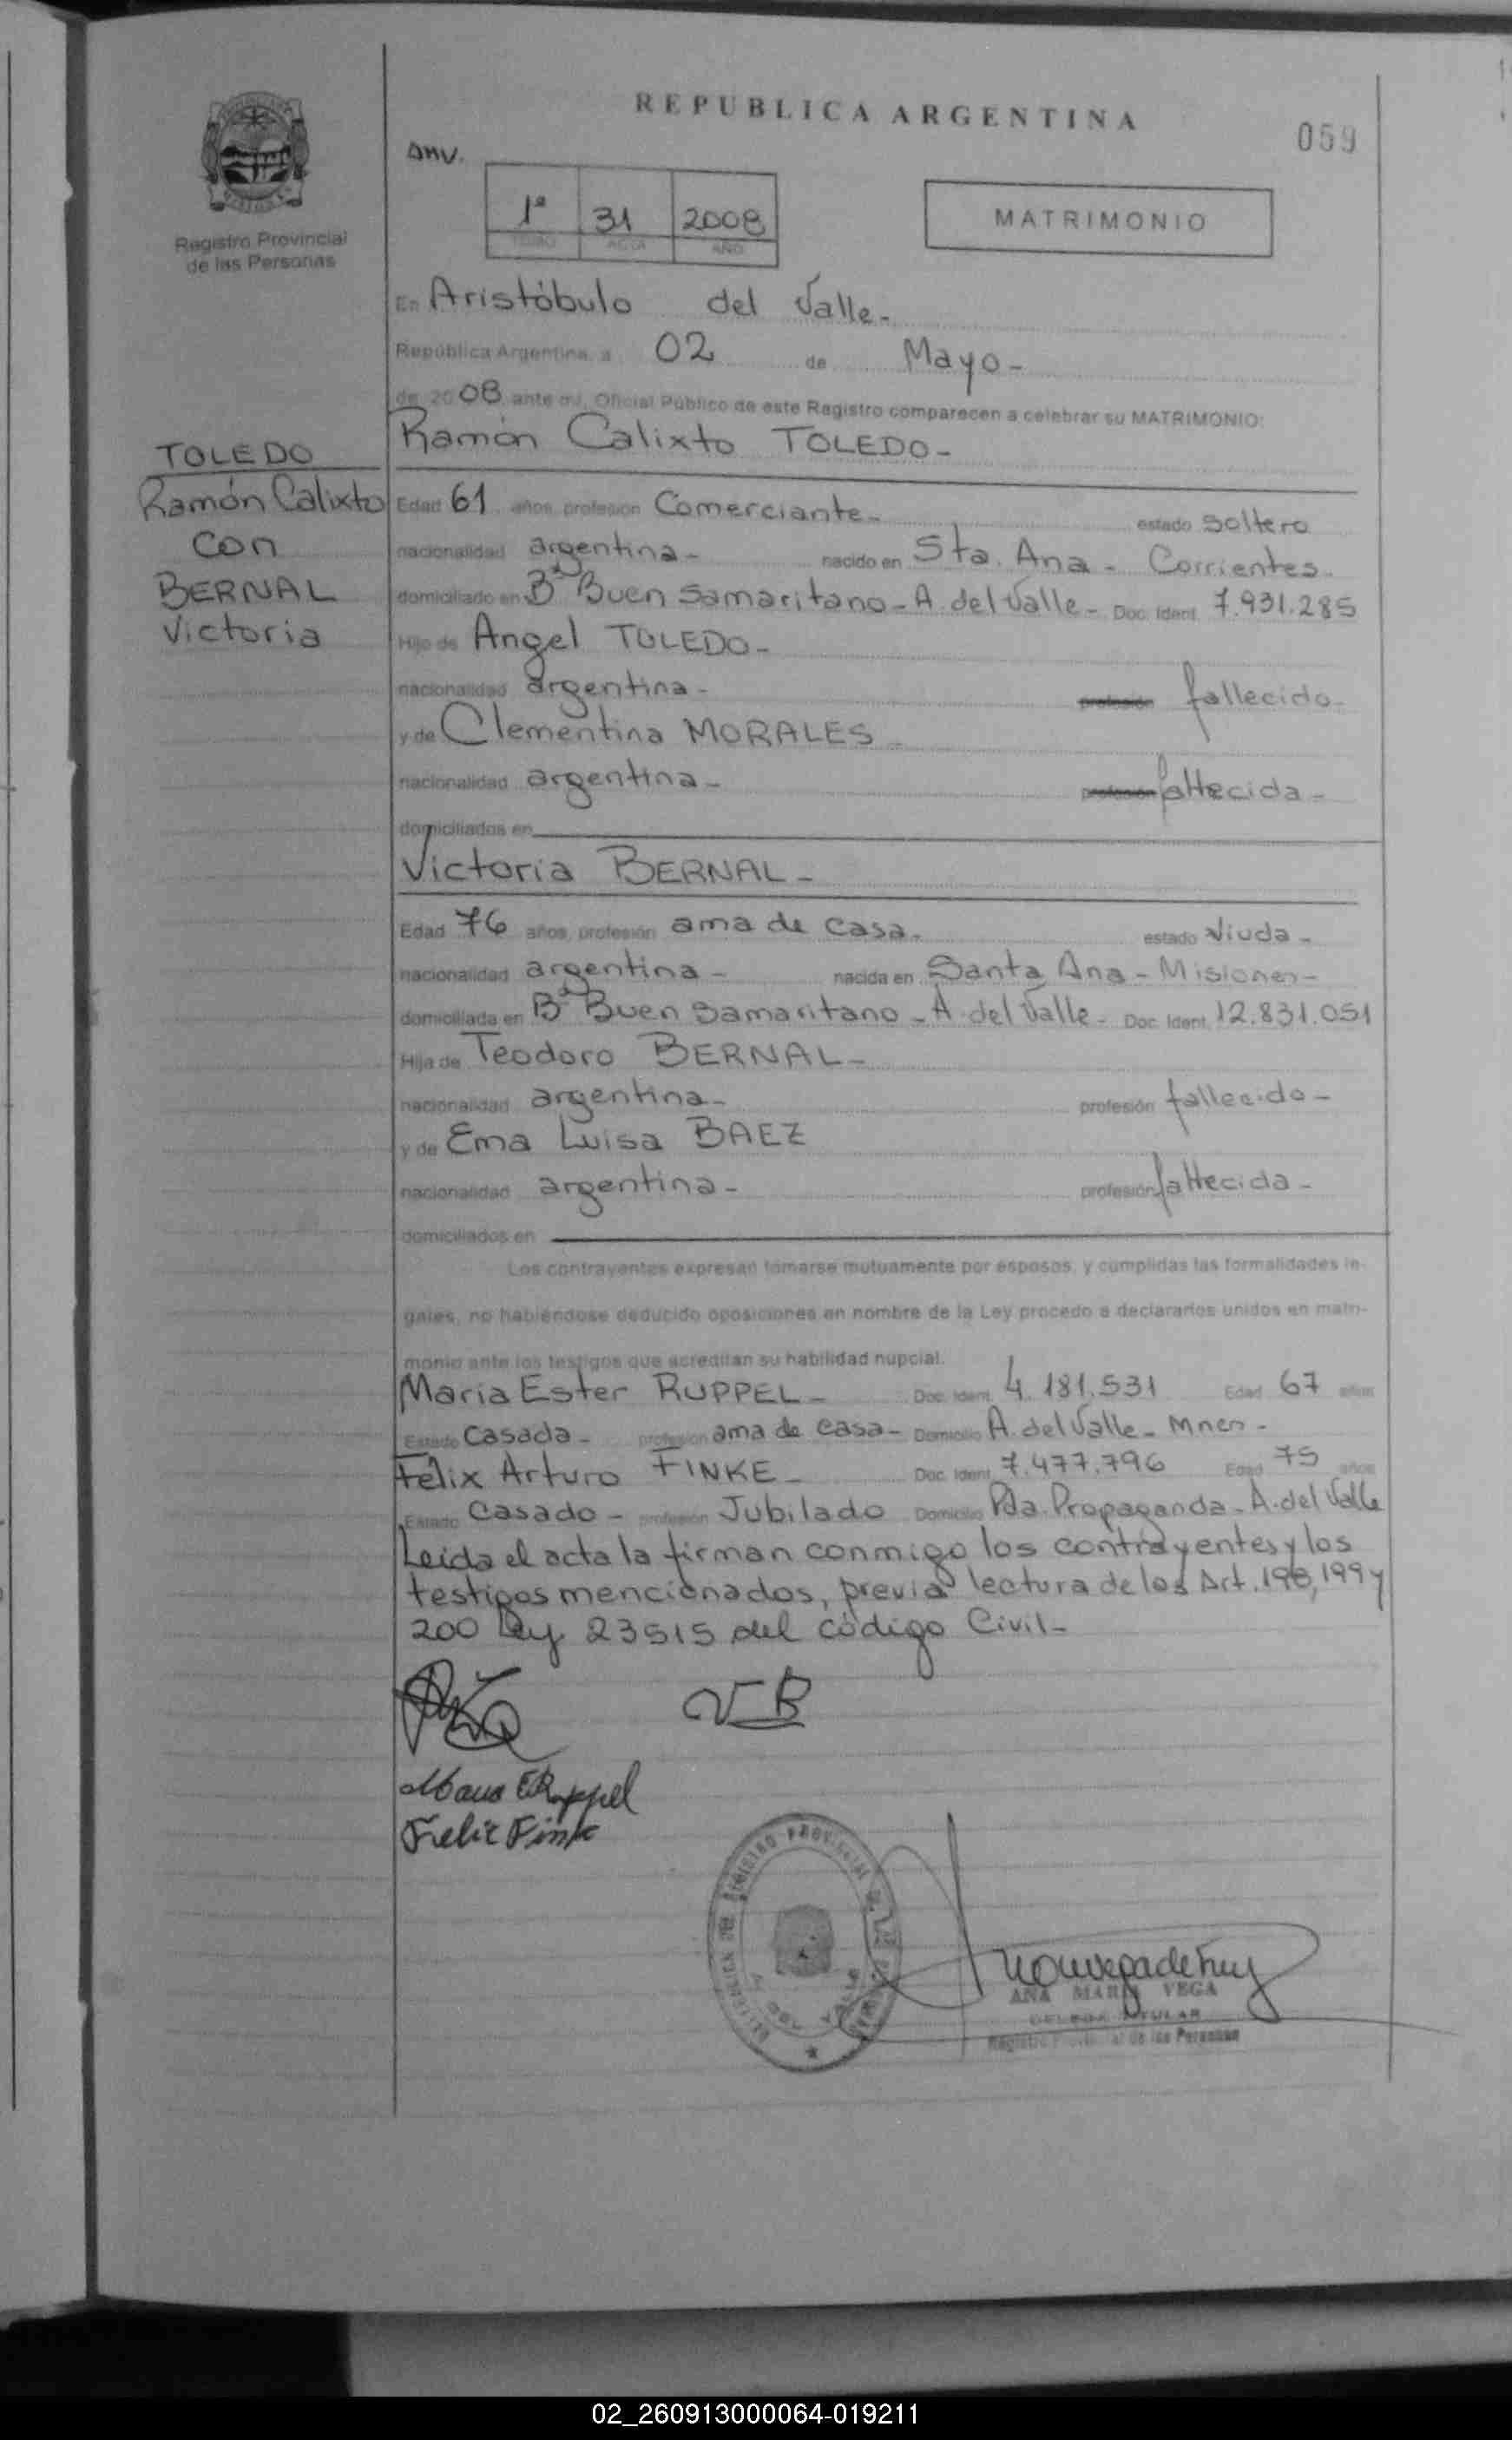 REPUBLICA ARGENTINA
059
anv.
1ª 31 2008
TOMO ACTA AÑO
MATRIMONIO
Registro Provincial
de las Personas
En Aristóbulo del Valle-
República Argentina, a 02 de Mayo-
de 2008 ante mí, Oficial Público de este Registro comparecen a celebrar su MATRIMONIO:
Ramón Calixto TOLEDO-
TOLEDO
Ramón Calixto
con
BERNAL
Victoria
Edad 61 años, profesión Comerciante- estado soltero
nacionalidad argentina- nacido en Sta. Ana - Corrientes-
domiciliado en Bº Buen Samaritano - A. del Valle- Doc. Ident. 7.931.285
Hijo de Angel TOLEDO-
nacionalidad argentina- profesión fallecido-
y de Clementina MORALES-
nacionalidad argentina- profesión fallecida-
domiciliados en
Victoria BERNAL-
Edad 76 años, profesión ama de casa- estado viuda-
nacionalidad argentina- nacida en Santa Ana - Misiones-
domiciliada en Bº Buen Samaritano - A. del Valle- Doc. Ident. 12.831.051
Hija de Teodoro BERNAL-
nacionalidad argentina- profesión fallecido-
y de Ema Luisa BAEZ
nacionalidad argentina- profesión fallecida-
domiciliados en
Los contrayentes expresan tomarse mutuamente por esposos, y cumplidas las formalidades le-
gales, no habiéndose deducido oposiciones en nombre de la Ley procedo a declararlos unidos en matri-
monio ante los testigos que acreditan su habilidad nupcial.
Maria Ester RUPPEL- Doc. Ident. 4.181.531 Edad 67 años
Estado Casada- profesión ama de casa- Domicilio A. del Valle- Mnes-
Félix Arturo FINKE- Doc. Ident. 7.477.796 Edad 75 años
Estado Casado- profesión Jubilado Domicilio Pda. Propaganda- A. del Valle
Leída el acta la firman conmigo los contrayentes y los
testigos mencionados, previa lectura de los Art. 198, 199 y
200 Ley 23515 del código Civil-
VB
Maria E Ruppel
Felix Finke
ANA MARIA VEGA
Registro Provincial de las Personas
02_260913000064-019211